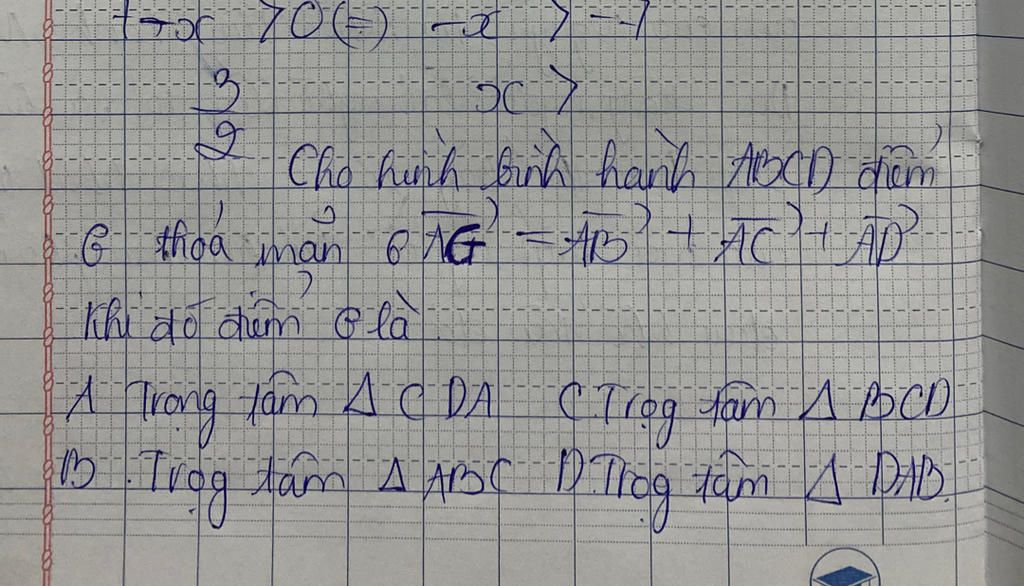 1 - x > 0 (=) -x > -1
3/2 x >
Cho hình bình hành ABCD điểm
G thoả mãn 6 AG = AB + AC + AD
Khi đó điểm G là
A Trọng tâm Δ CDA C. Trọg tâm Δ BCD
B. Trọg tâm Δ ABC D. Trọg tâm Δ DAB.